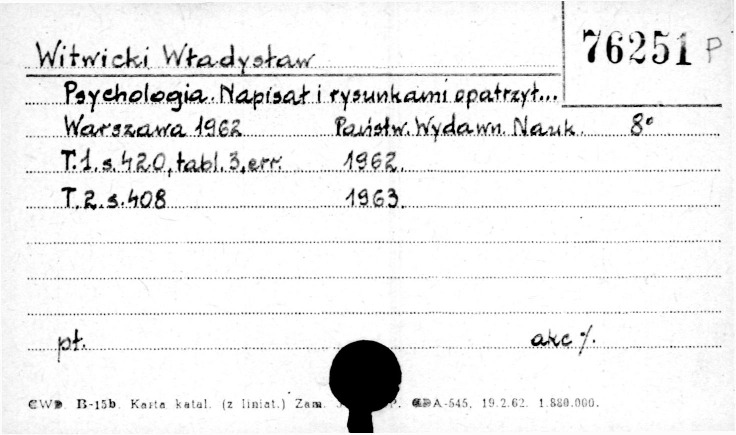 Witwicki Władysław
76251 P
Psychologia. Napisał i rysunkami opatrzył...
Warszawa 1962 Państw. Wydawn. Nauk. 8°
T.1. s. 420, tabl. 3, err. 1962.
T. 2. s. 408 1963.
pł. akc %.
CWD. B-15b. Karta katal. (z liniat.) Zam. P. CDA-545, 19.2.62. 1.880.000.